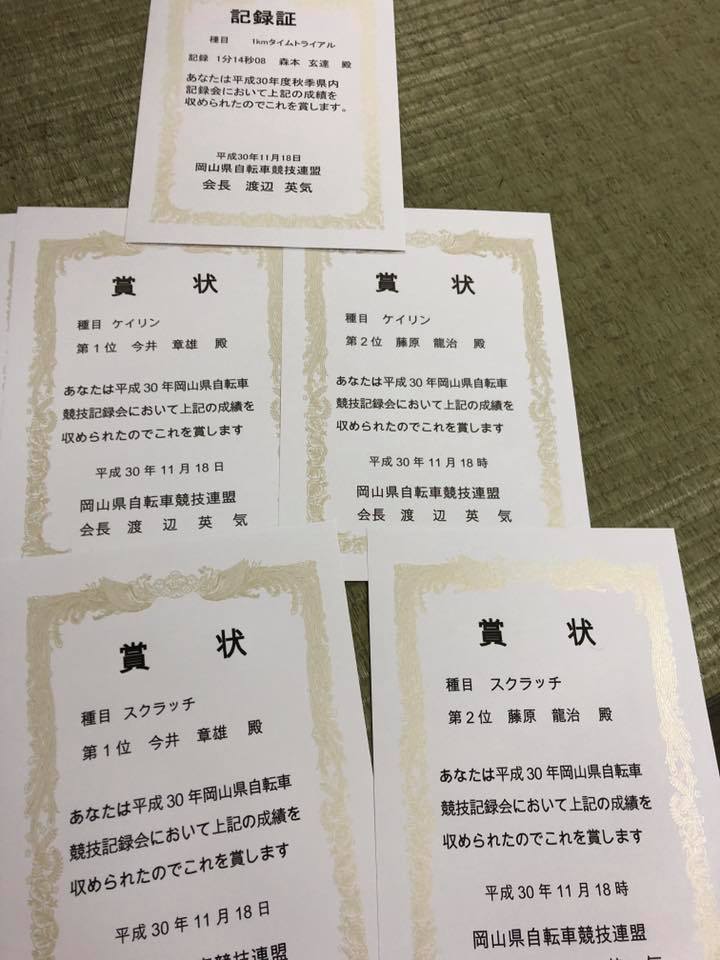 記録証
種目 1kmタイムトライアル
記録 1分14秒08 森本 玄達 殿
あなたは平成30年度秋季県内
記録会において上記の成績を
収められたのでこれを賞します。
平成30年11月18日
岡山県自転車競技連盟
会長 渡辺 英気
賞 状
種目 ケイリン
第1位 今井 章雄 殿
あなたは平成30年岡山県自転車
競技記録会において上記の成績を
収められたのでこれを賞します
平成30年11月18日
岡山県自転車競技連盟
会長 渡辺 英気
賞 状
種目 ケイリン
第2位 藤原 龍治 殿
あなたは平成30年岡山県自転車
競技記録会において上記の成績を
収められたのでこれを賞します
平成30年11月18時
岡山県自転車競技連盟
会長 渡辺 英気
賞 状
種目 スクラッチ
第1位 今井 章雄 殿
あなたは平成30年岡山県自転車
競技記録会において上記の成績を
収められたのでこれを賞します
平成30年11月18日
賞 状
種目 スクラッチ
第2位 藤原 龍治 殿
あなたは平成30年岡山県自転車
競技記録会において上記の成績を
収められたのでこれを賞します
平成30年11月18時
岡山県自転車競技連盟